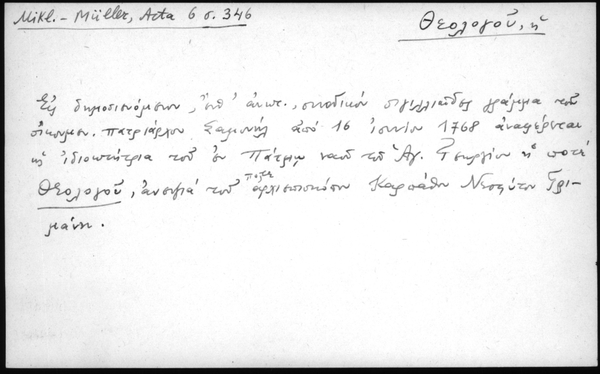 Mikl.-Müller, Acta 6 σ. 346
Θεολογοῦ, ἡ
Εἰς δημοσιευόμενον, ἐνθ' ἀνωτ., συνοδικόν σιγιλλιῶδες γράμμα τοῦ
οἰκουμεν. πατριάρχου Σαμουήλ ἀπό 16 ἰουνίου 1768 ἀναφέρεται
ἡ ἰδιοκτήτρια τοῦ ἐν Πάτμῳ ναοῦ τοῦ Ἁγ. Γεωργίου ἡ ποτέ
Θεολογοῦ, ἀνεψιά τοῦ ποτέ ἀρχιεπισκόπου Καρπάθου Νεοφύτου Γρι-
μάνη.